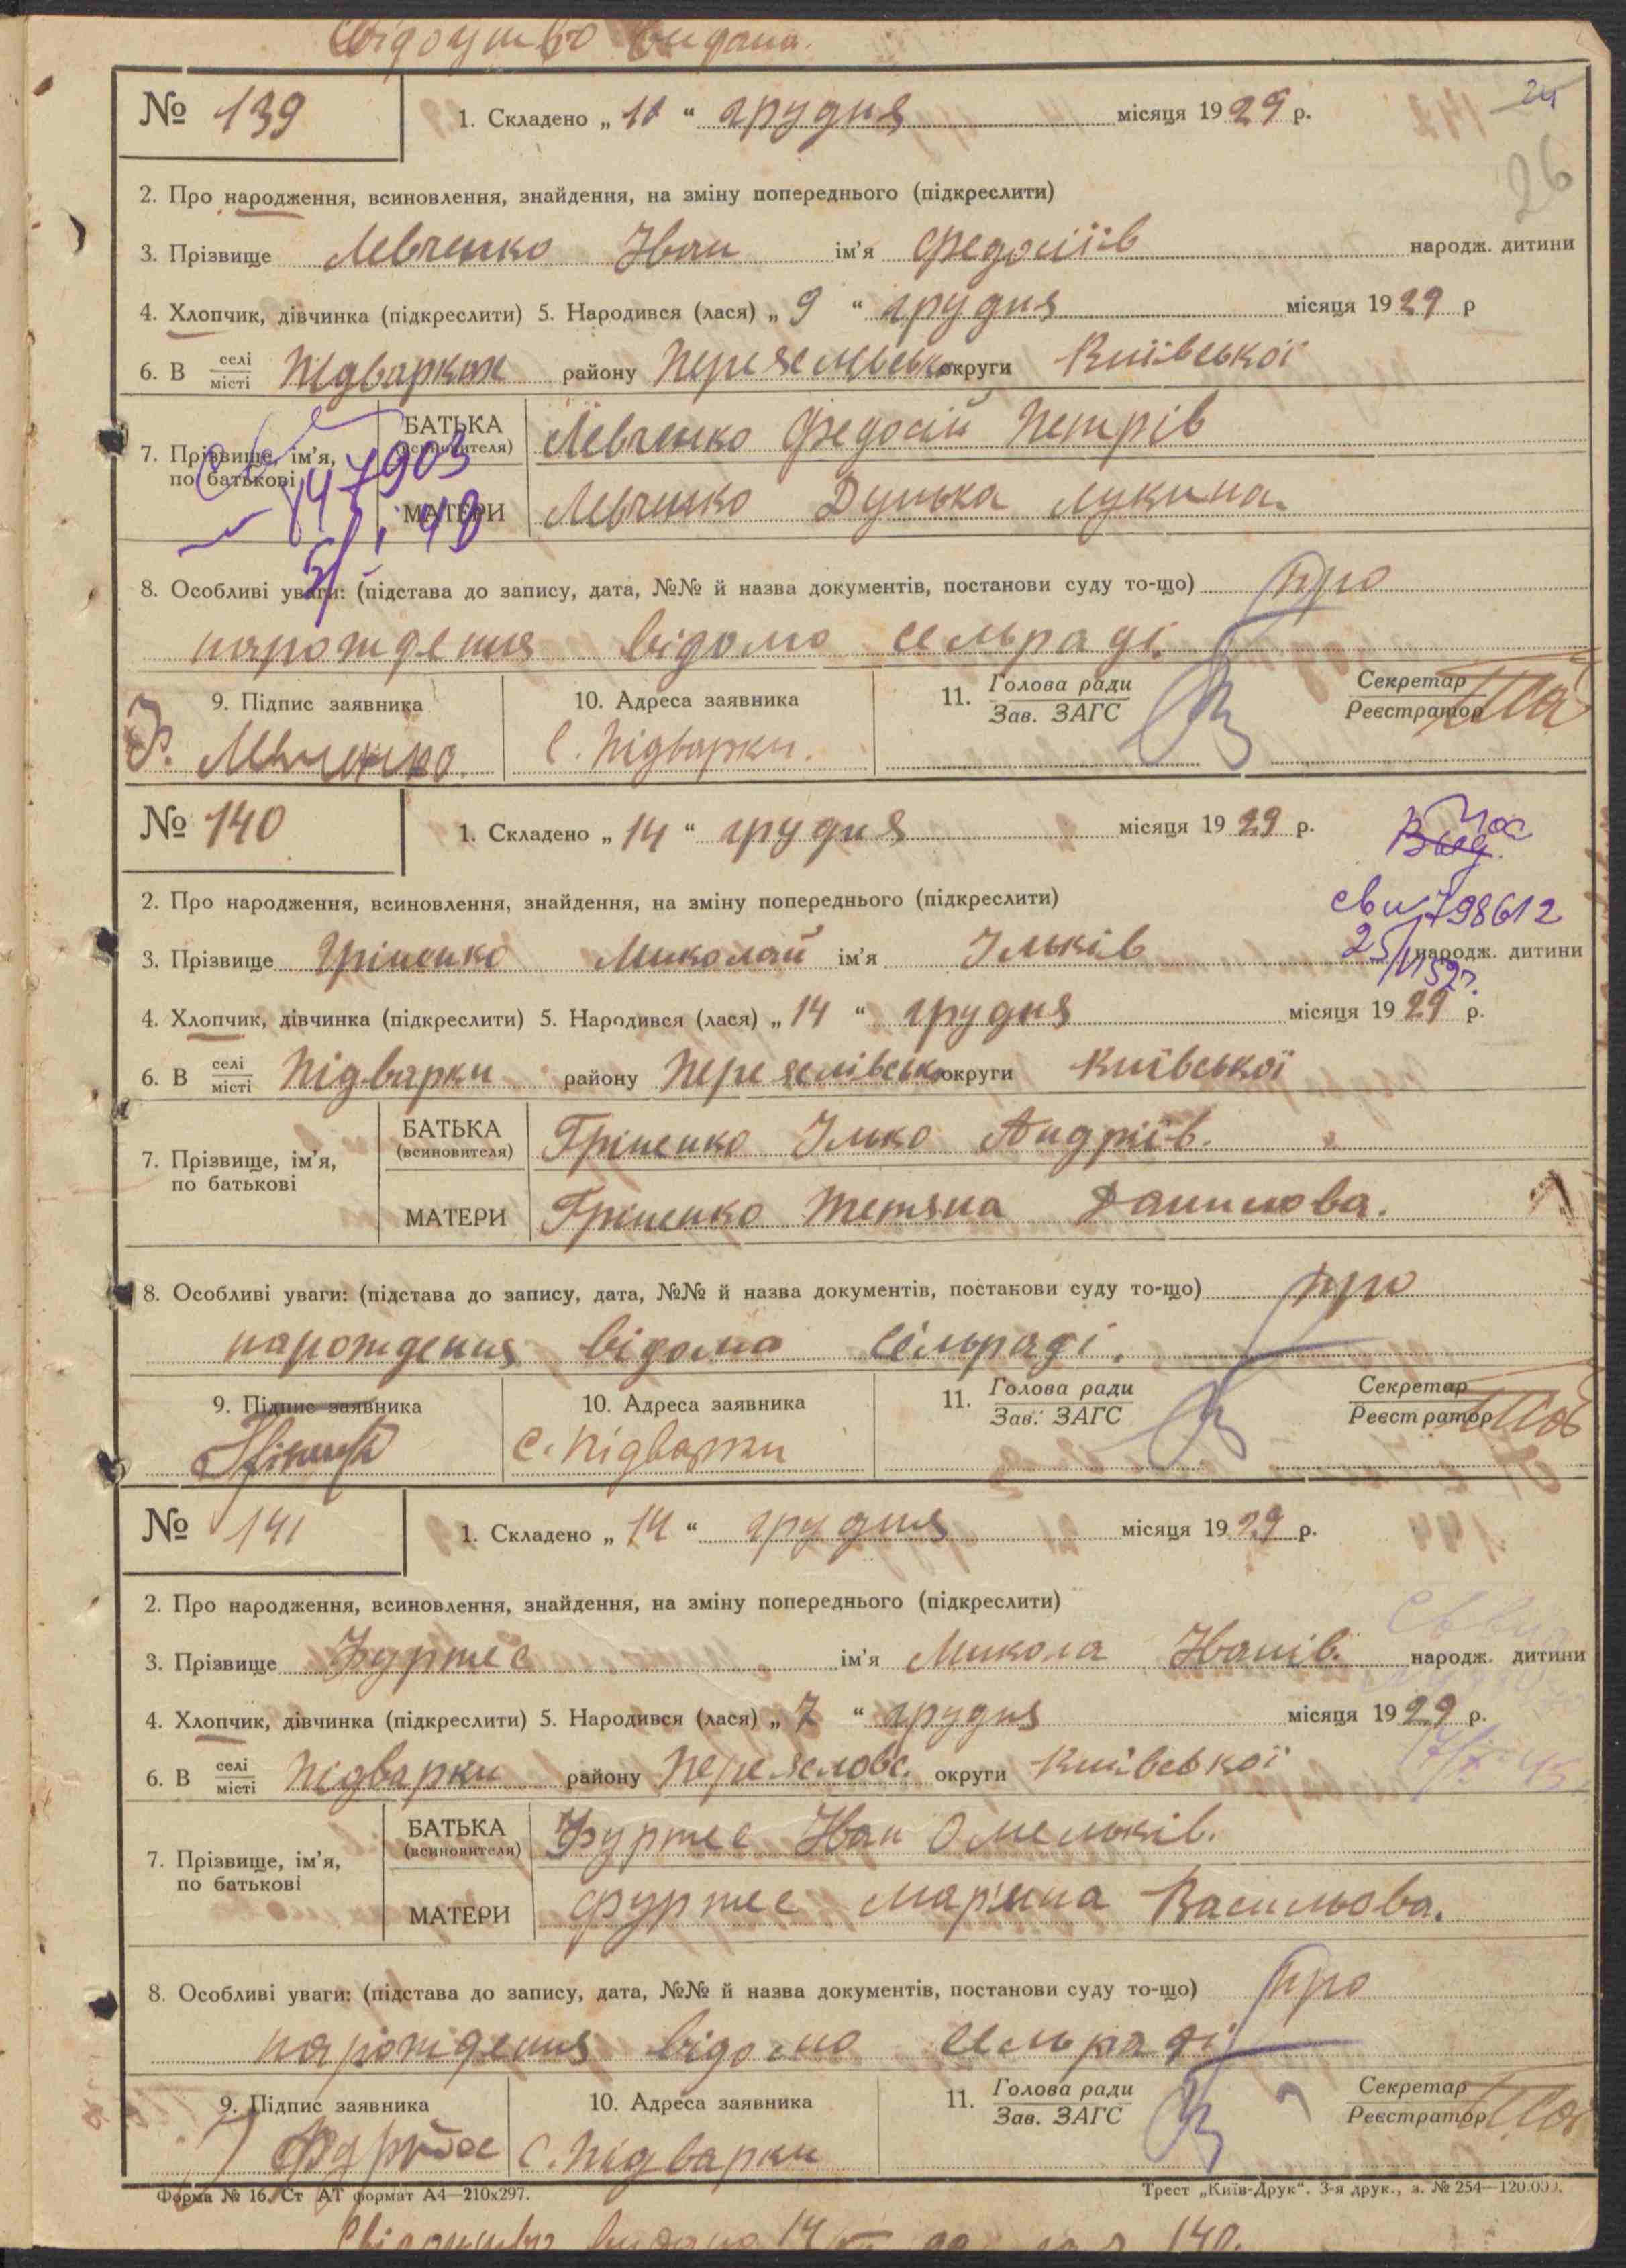 Свідоцтво видана.
№ 139
1. Складено „ 11 “ грудня місяця 1929 р.
24
26
2. Про народження, всиновлення, знайдення, на зміну попереднього (підкреслити)
3. Прізвище Левченко Іван ім’я Федосіїв народж. дитини
4. Хлопчик, дівчинка (підкреслити) 5. Народився (лася) „ 9 “ грудня місяця 1929 р
6. В селі/місті Підварках району Переяславськ округи Київської
7. Прізвище, ім’я, по батькові
903
БАТЬКА (всиновителя) Левченко Федосій Петрів
МАТЕРИ Левченко Дунька Лукина.
8. Особливі уваги: (підстава до запису, дата, №№ й назва документів, постанови суду то-що) Про
народження відомо сельраді.
9. Підпис заявника
10. Адреса заявника
11. Голова ради / Зав. ЗАГС
Секретар / Реєстратор
Ф. Левченко.
с. Підварки.
№ 140
1. Складено „ 14 “ грудня місяця 1929 р.
798612
2. Про народження, всиновлення, знайдення, на зміну попереднього (підкреслити)
3. Прізвище Гріненко Миколай ім’я Ільків народж. дитини
4. Хлопчик, дівчинка (підкреслити) 5. Народився (лася) „ 14 “ грудня місяця 1929 р.
6. В селі/місті Підварки району Переяслівськ округи Київської
7. Прізвище, ім’я, по батькові
БАТЬКА (всиновителя) Гріненко Ілько Андріїв.
МАТЕРИ Гріненко Тетяна Данилова.
8. Особливі уваги: (підстава до запису, дата, №№ й назва документів, постанови суду то-що) Про
народження відомо сельраді.
9. Підпис заявника
10. Адреса заявника
11. Голова ради / Зав. ЗАГС
Секретар / Реєстратор
с. Підварки
№ 141
1. Складено „ 14 “ грудня місяця 1929 р.
2. Про народження, всиновлення, знайдення, на зміну попереднього (підкреслити)
3. Прізвище Фуртес ім’я Микола Іванів. народж. дитини
4. Хлопчик, дівчинка (підкреслити) 5. Народився (лася) „ 7 “ грудня місяця 1929 р.
6. В селі/місті Підварки району Переясловс. округи Київської
7. Прізвище, ім’я, по батькові
БАТЬКА (всиновителя) Фуртес Іван Омельків.
МАТЕРИ Фуртес Мар’яна Васильова.
8. Особливі уваги: (підстава до запису, дата, №№ й назва документів, постанови суду то-що) Про
народження відомо сельраді
9. Підпис заявника
10. Адреса заявника
11. Голова ради / Зав. ЗАГС
Секретар / Реєстратор
с. Підварки
Форма № 16. Ст АТ формат А4—210х297.
Трест „Київ-Друк“. 3-я друк., з. № 254—120.000.
Свідоцтво видана 14
140.